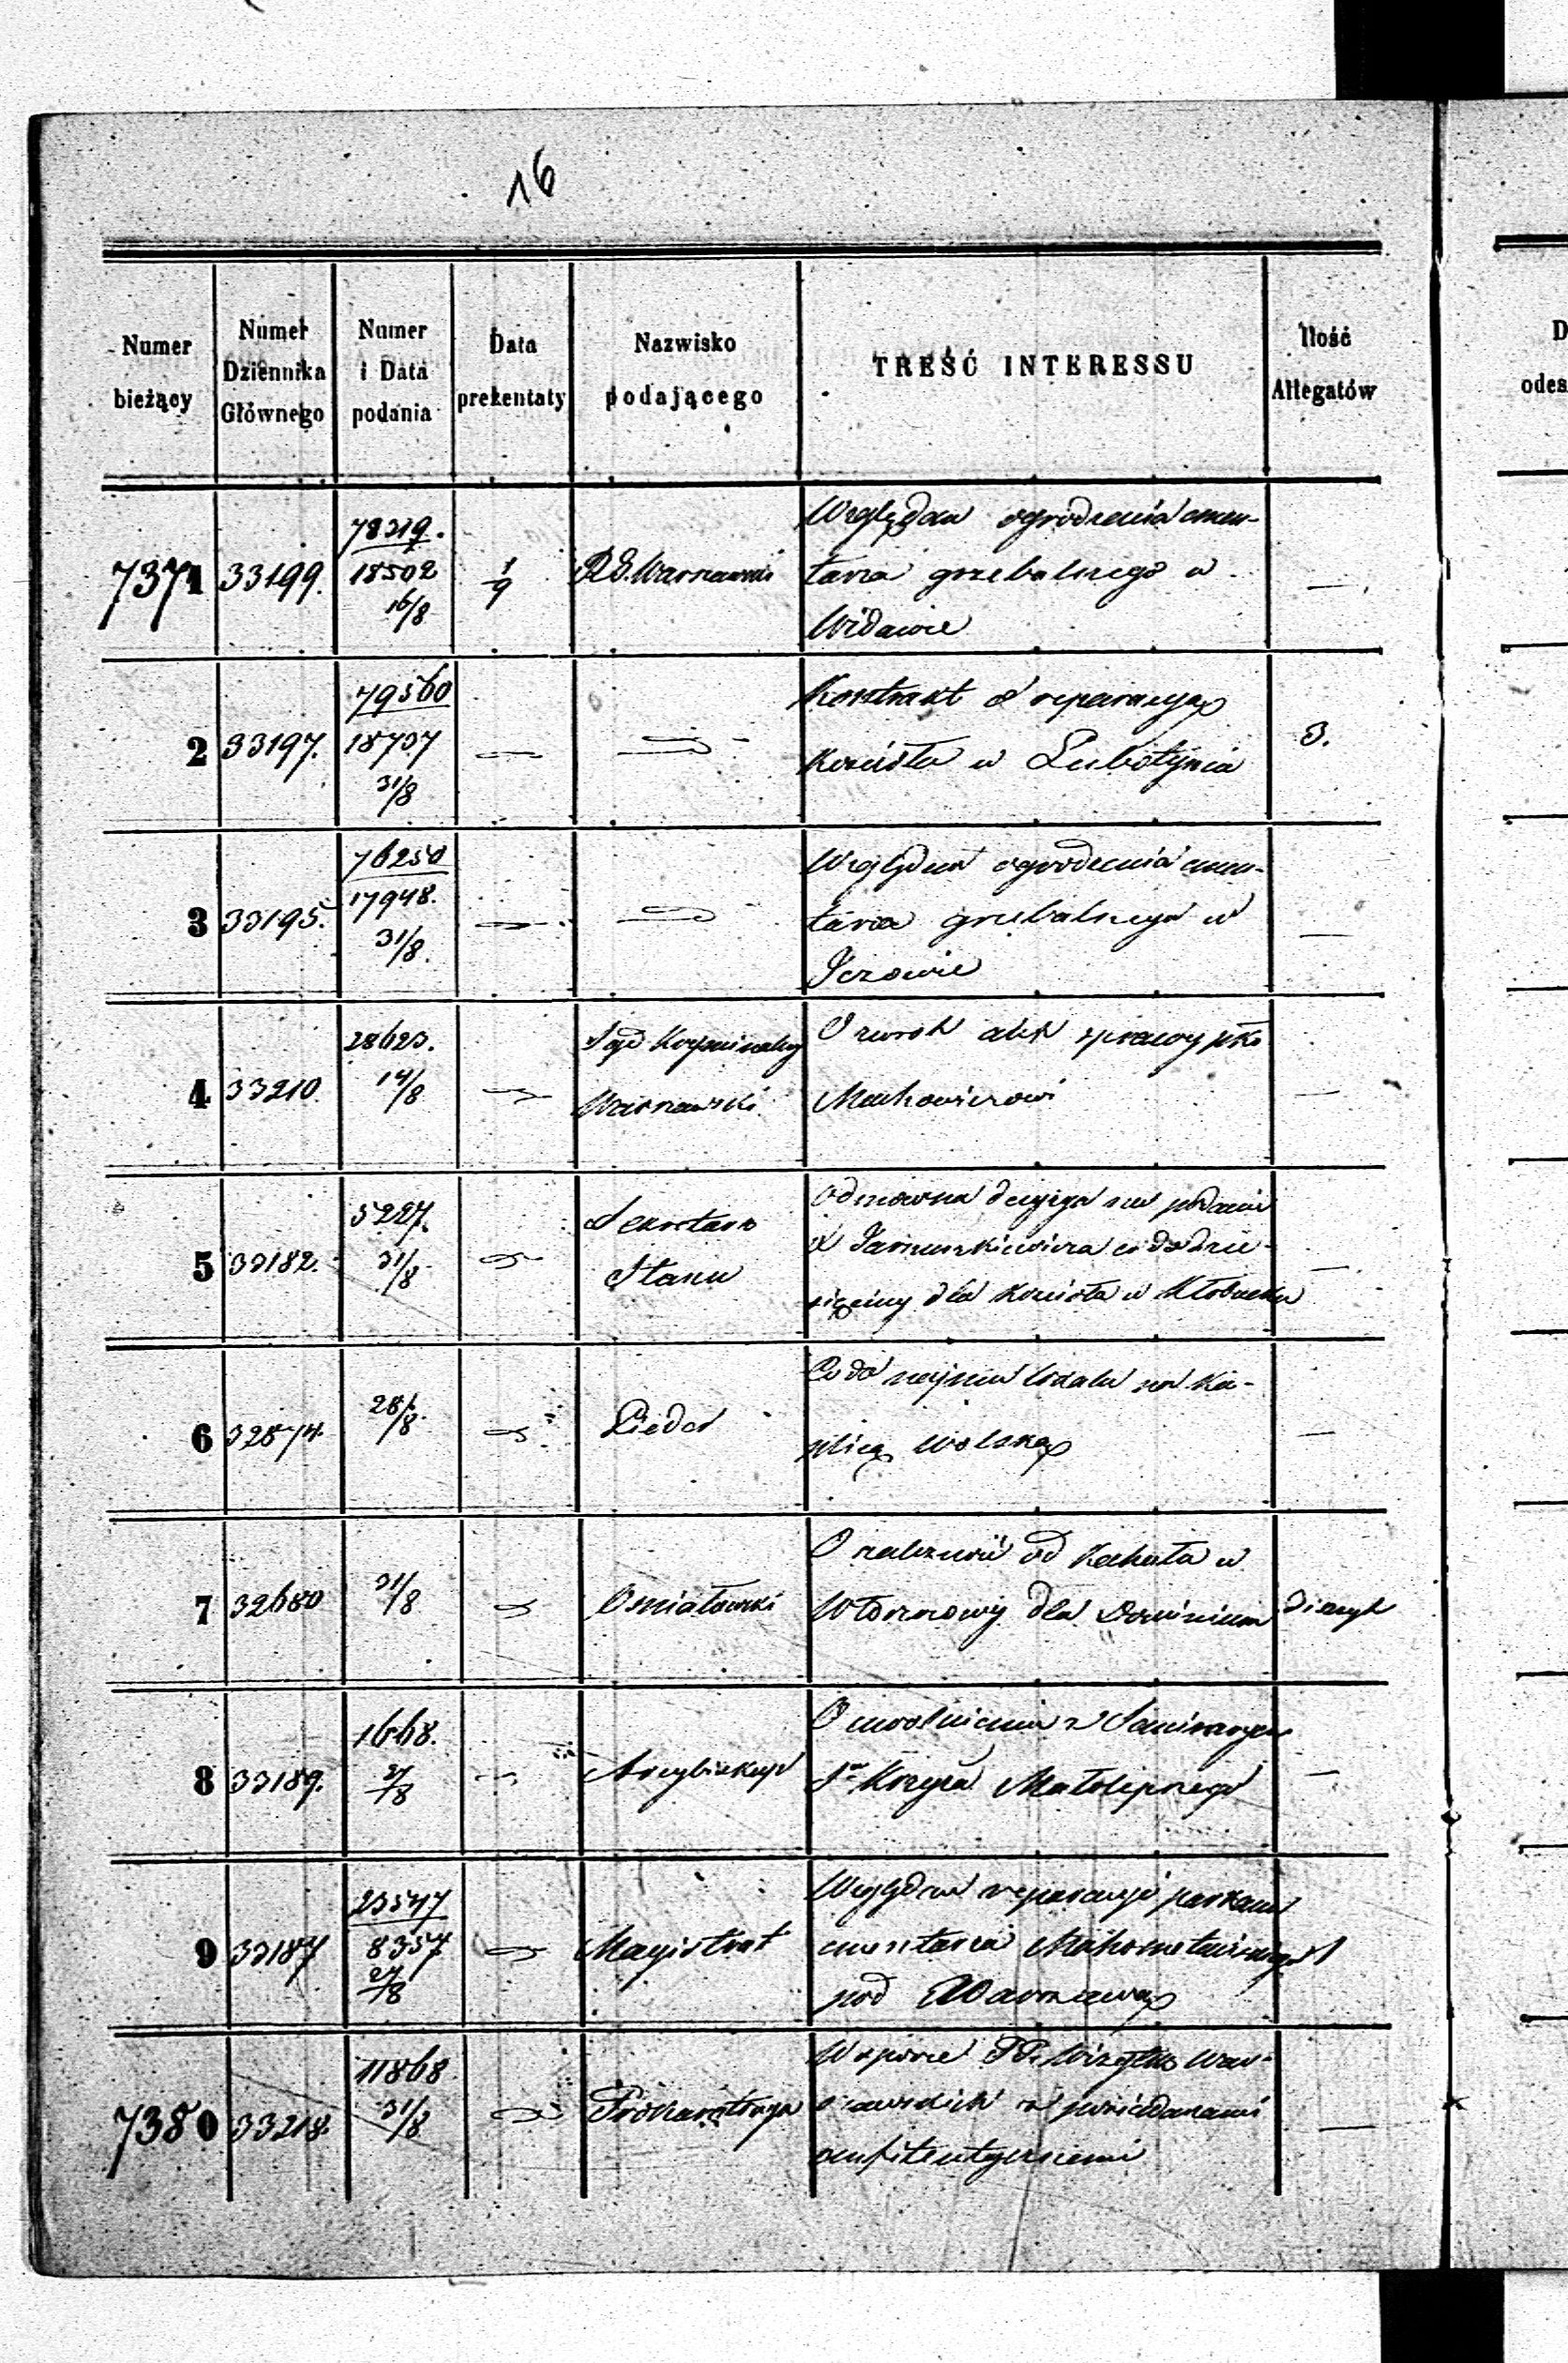 16
Numer bieżący
Numer Dziennika Głównego
Numer i Data podania
Data prezentaty
Nazwisko podającego
TREŚĆ INTERESSU
Ilość Allegatów
D
odes
7371 33199. 78319. 18502 16/8 1/9 R.G. Warszawski
Względem ogrodzenia cmen-
tarza grzebalnego w
Widawie
—
2 33197. 79560 18737 31/8
Kontrakt o reperacyą
kościoła w Lubotynia
3.
3 33195. 76250 17948. 31/8.
Względem ogrodzenia cmen-
tarza grzebalnego w
—
4 33210 28623. 14/8
Sąd Kryminalny
Warszawski
O zwrot akt sprawy pko
Mackowiczowi
—
5 33182. 5227. 31/8
Sekretarz
Stanu
Odmowna decyzya na podanie
X Jarmuszkiewicza co do dzie-
sięciny dla kościoła w Kłobucku
—
6 32874. 28/8.
Co do najmu lokalu na Ka-
plicę Wolską
—
7 32680 31/8 Osmiałowski
O należność od Kahału w
Włoszczowy dla Dominium
8 33189. 1668. 31/8 Arcybiskup
O uwolnienie z Seminaryum
Sgo Krzyża Małolepszego
—
9 33187 23547 8357 27/8 Magistrat
Względem reparacyi parkanu
cmentarza Mahometańskiego
pod Warszawą
1
7380 33218. 11868 31/8 Prokuratorya
W sporze PP. Wizytek War-
szawskich z posiadaczami
emfiteutycznemi
—